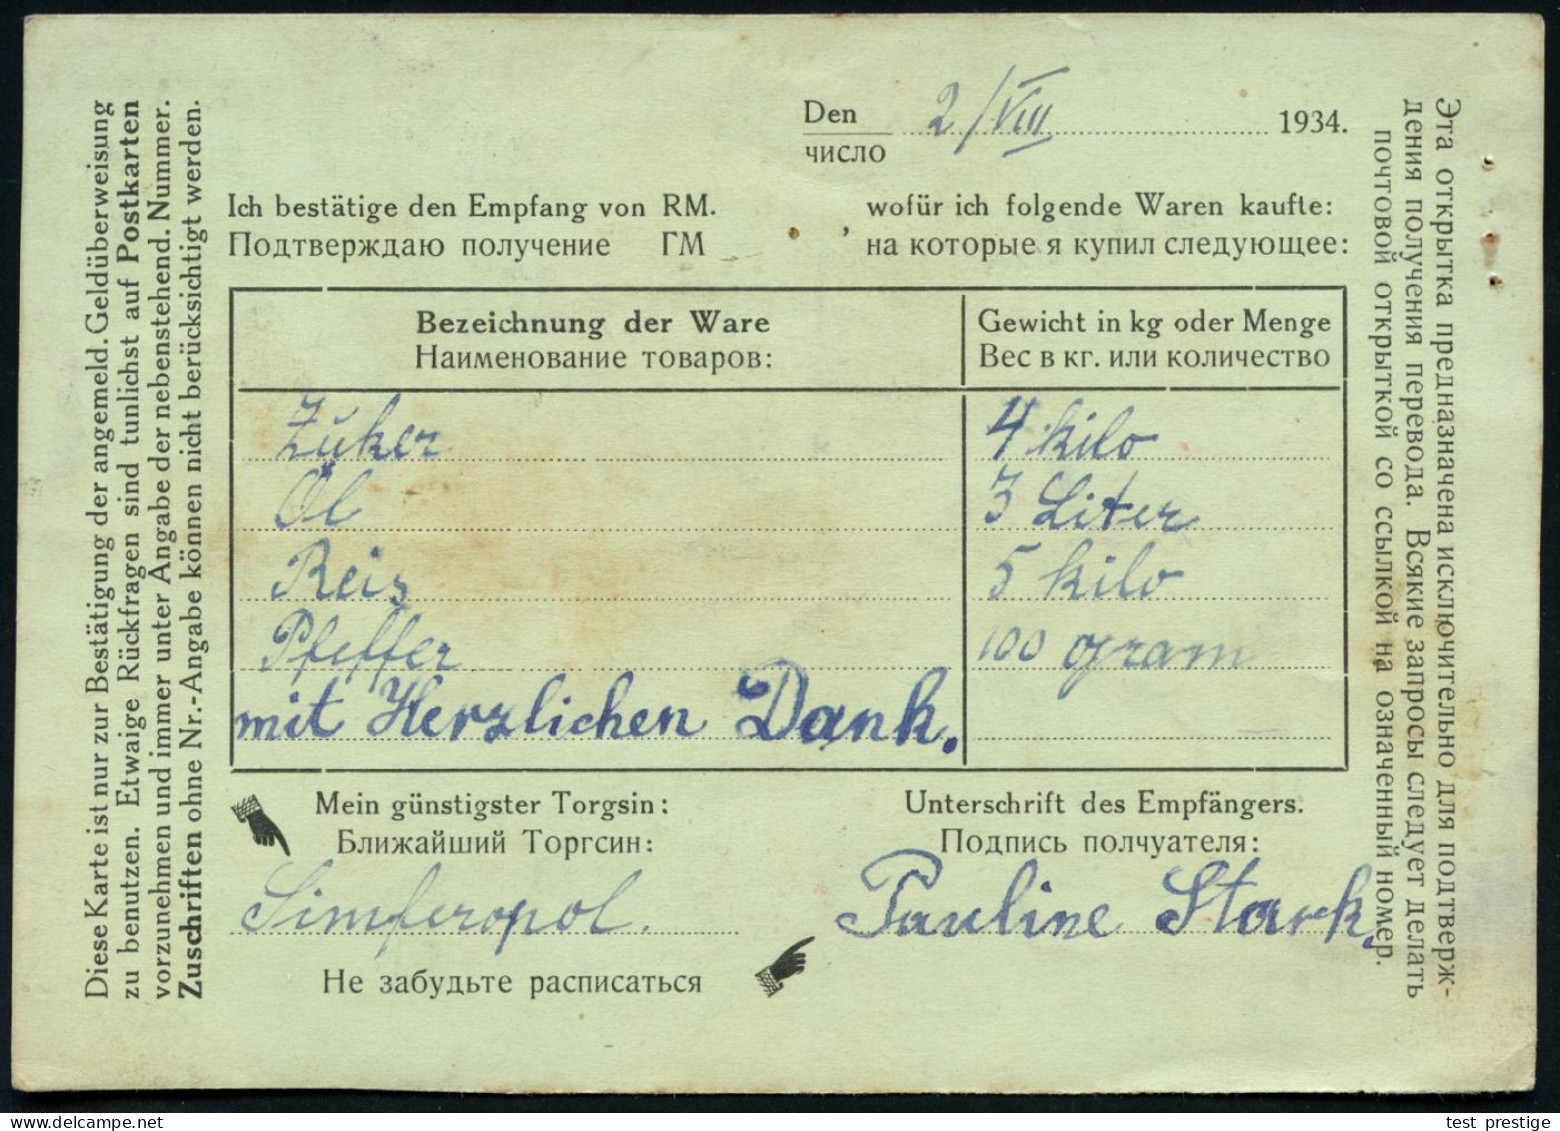 Diese Karte ist nur zur Bestätigung der angemeld. Geldüberweisung
zu benutzen. Etwaige Rückfragen sind tunlichst auf Postkarten
vorzunehmen und immer unter Angabe der nebenstehend. Nummer.
Zuschriften ohne Nr.-Angabe können nicht berücksichtigt werden.
Den 2/VIII 1934.
число
Ich bestätige den Empfang von RM. wofür ich folgende Waren kaufte:
Подтверждаю получение ГМ , на которые я купил следующее:
Bezeichnung der Ware Gewicht in kg oder Menge
Наименование товаров: Вес в кг. или количество
Zuker 4 kilo
Öl 3 Liter
Reis 5 kilo
Pfeffer 100 gram
mit Herzlichen Dank.
Mein günstigster Torgsin: Unterschrift des Empfängers.
Ближайший Торгсин: Подпись полчуателя:
Simferopol. Pauline Stark,
Не забудьте расписаться
Эта открытка предназначена исключительно для подтверж-
дения получения перевода. Всякие запросы следует делать
почтовой открыткой со ссылкой на означенный номер.
test_prestige